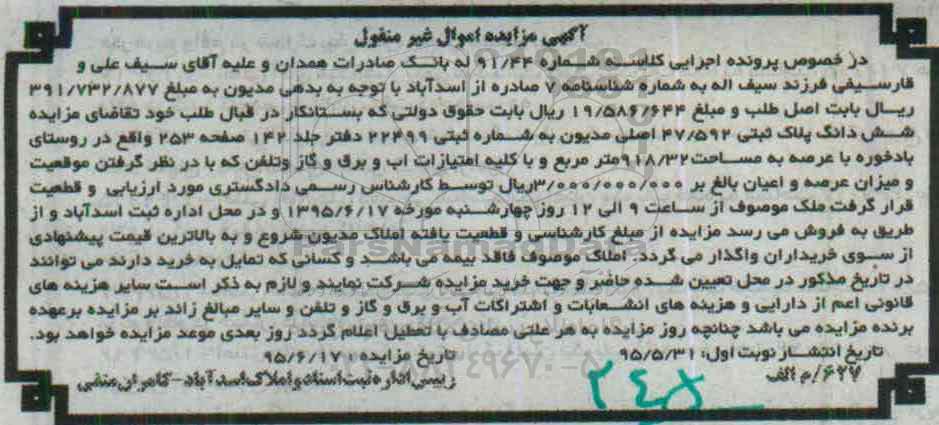 آگهی مزایده اموال غیر منقول
در خصوص پرونده اجرایی کلاسه شماره ۹۱/۴۴ له بانک صادرات همدان و علیه آقای سیف علی و
فارسیفی فرزند سیف اله به شماره شناسنامه ۷ صادره از اسدآباد با توجه به بدهی مدیون به مبلغ ۳۹۱/۷۳۲/۸۷۷
ریال بابت اصل طلب و مبلغ ۱۹/۵۸۶/۶۴۴ ریال بابت حقوق دولتی که بستانکار در قبال طلب خود تقاضای مزایده
شش دانگ پلاک ثبتی ۴۷/۵۹۲ اصلی مدیون به شماره ثبتی ۲۲۴۹۹ دفتر جلد ۱۴۲ صفحه ۲۵۳ واقع در روستای
بادخوره با عرصه به مساحت ۹۱۸/۳۲ متر مربع و با کلیه امتیازات اب و برق و گاز وتلفن که با در نظر گرفتن موقعیت
و میزان عرصه و اعیان بالغ بر ۳/۰۰۰/۰۰۰/۰۰۰ ریال توسط کارشناس رسمی دادگستری مورد ارزیابی و قطعیت
قرار گرفت ملک موصوف از ساعت ۹ الی ۱۲ روز چهارشنبه مورخه ۱۳۹۵/۶/۱۷ و در محل اداره ثبت اسدآباد و از
طریق به فروش می رسد مزایده از مبلغ کارشناسی و قطعیت یافته املاک مدیون شروع و به بالاترین قیمت پیشنهادی
از سوی خریداران واگذار می گردد. املاک موصوف فاقد بیمه می باشد و کسانی که تمایل به خرید دارند می توانند
در تاریخ مذکور در محل تعیین شده حاضر و جهت خرید مزایده شرکت نمایند و لازم به ذکر است سایر هزینه های
قانونی اعم از دارایی و هزینه های انشعابات و اشتراکات آب و برق و گاز و تلفن و سایر مبالغ زائد بر مزایده برعهده
برنده مزایده می باشد چنانچه روز مزایده به هر علتی مصادف با تعطیل اعلام گردد روز بعدی موعد مزایده خواهد بود.
تاریخ انتشار نوبت اول: ۹۵/۵/۳۱ تاریخ مزایده: ۹۵/۶/۱۷
۶۲۷/م الف رییس اداره ثبت اسناد و املاک اسدآباد-کامران متقی
۲۴۸
ParsNamadData